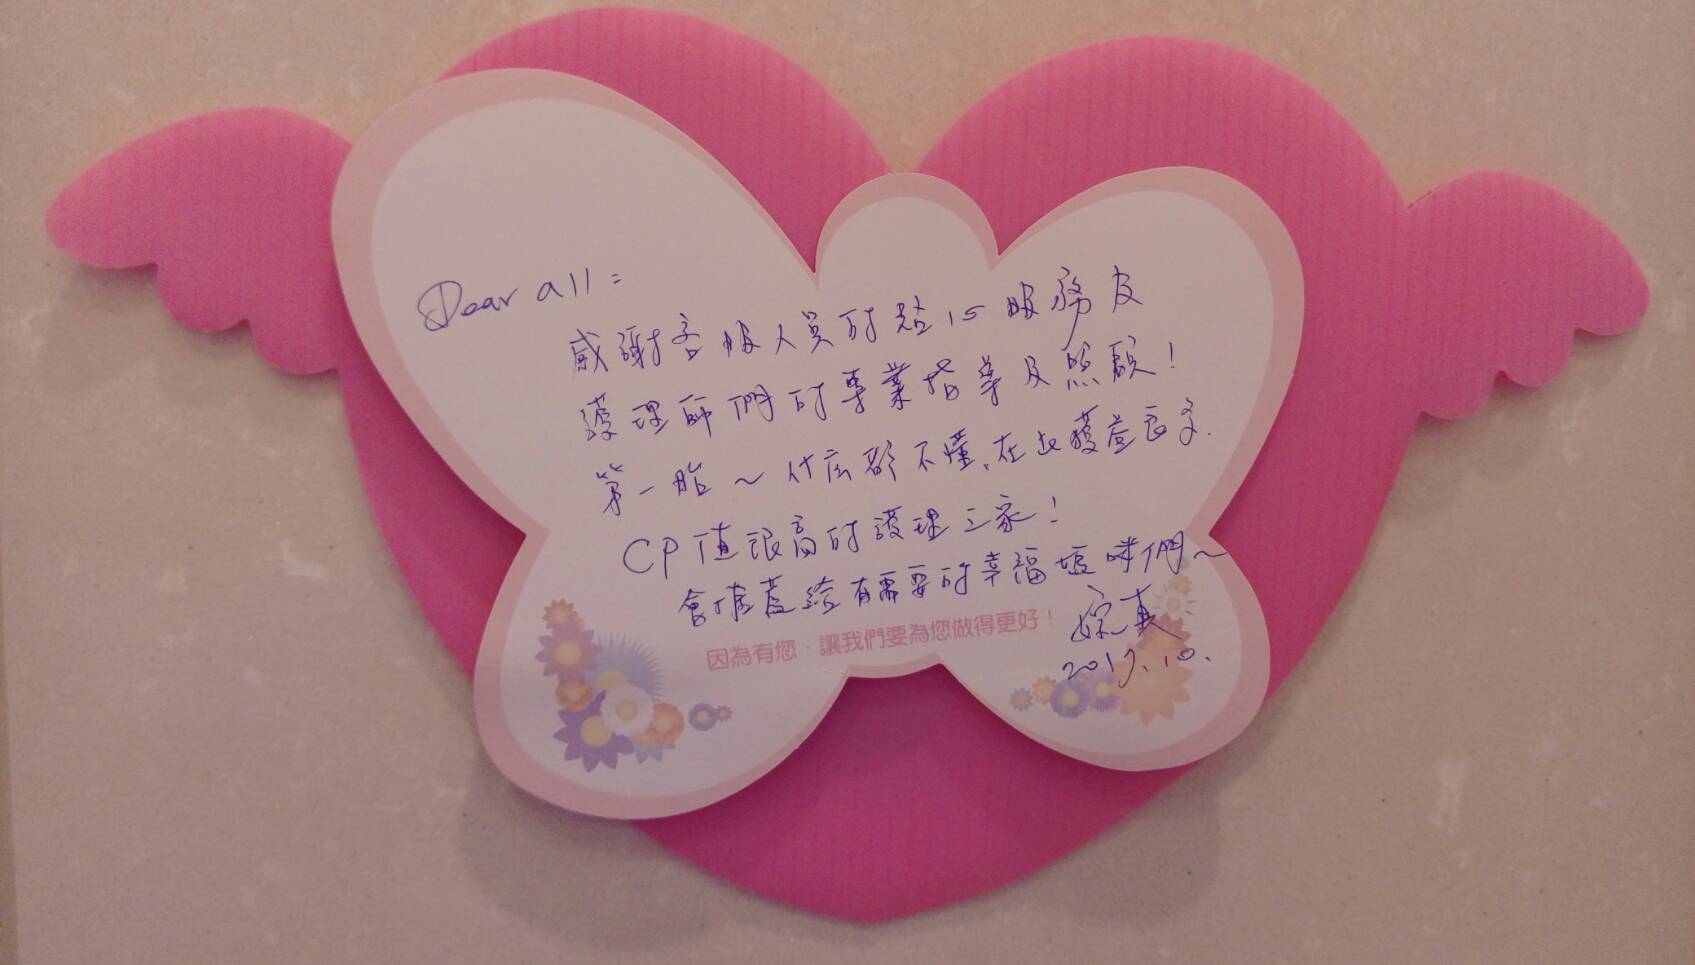 Dear all:
感謝客服人員的貼心服務及
護理師們的專業指導及照顧!
第一胎~什広都不懂、在此獲益良多.
CP值很高的護理之家!
會推薦給有需要的幸福媽咪們~
因為有您‧讓我們要為您做得更好!
2017.10.